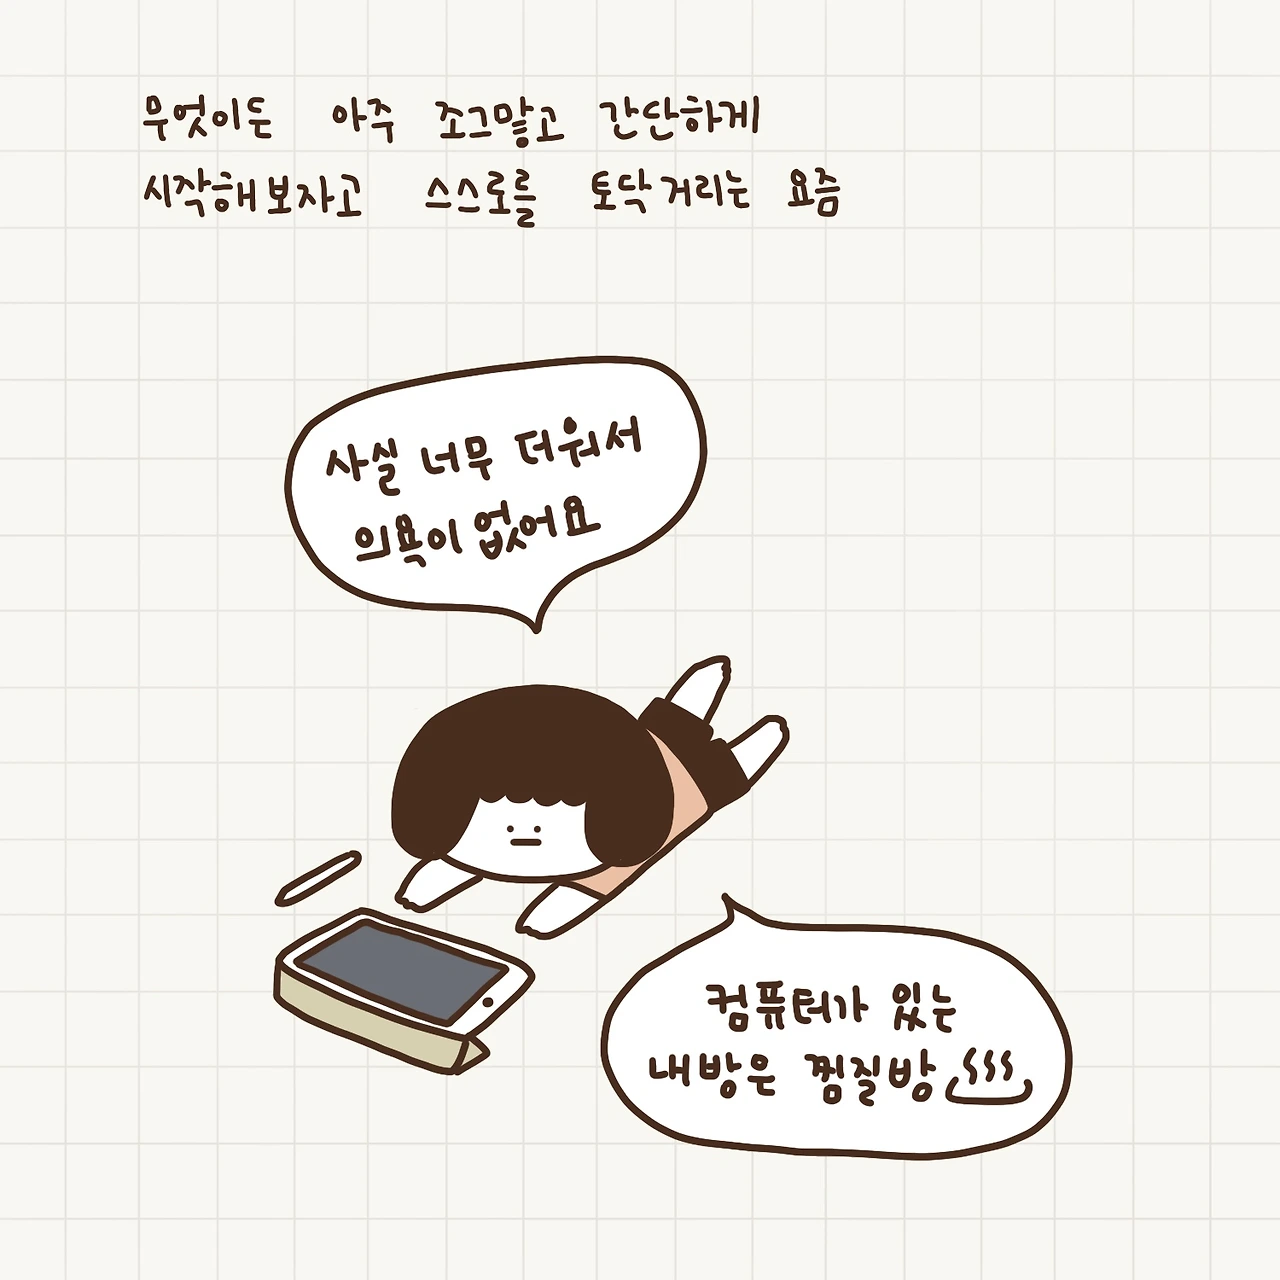 무엇이든 아주 조그맣고 간단하게
시작해보자고 스스로를 토닥거리는 요즘
사실 너무 더워서
의욕이 없어요
컴퓨터가 있는
내방은 찜질방